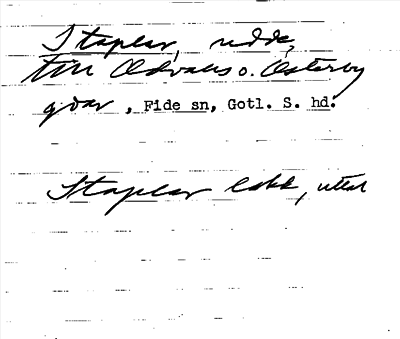 Staplar, udde,
till Odvalls o. Österby
gdar, Fide sn, Gotl. S. hd.
Staplar lokk, uttal